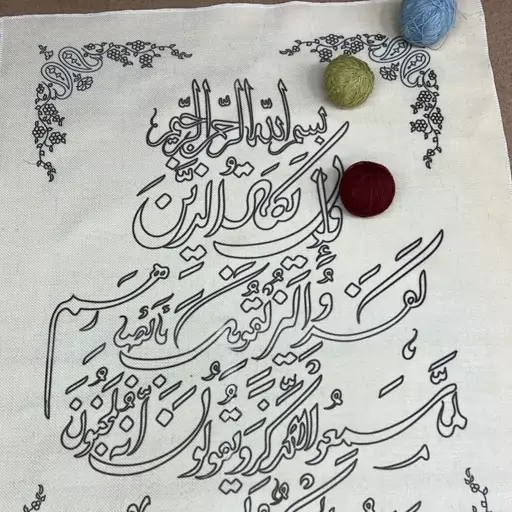 بسم الله الرحمن الرحيم
وإن يكاد الذين
كفروا ليزلقونك بأبصارهم
لما سمعوا الذكر ويقولون إنه لمجنون